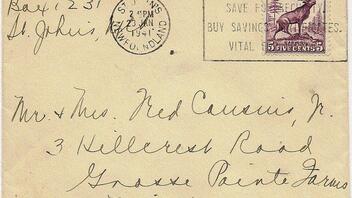 Box 1231
St. Johns, N
ST. JOHN'S
2 PM
23 JAN
1941
NEWFOUNDLAND
SAVE FOR
BUY SAVINGS
VITAL
5 FIVE CENTS 5
Mr. & Mrs. Ned Cousins, Jr.
3 Hillcrest Road
Grosse Pointe Farms